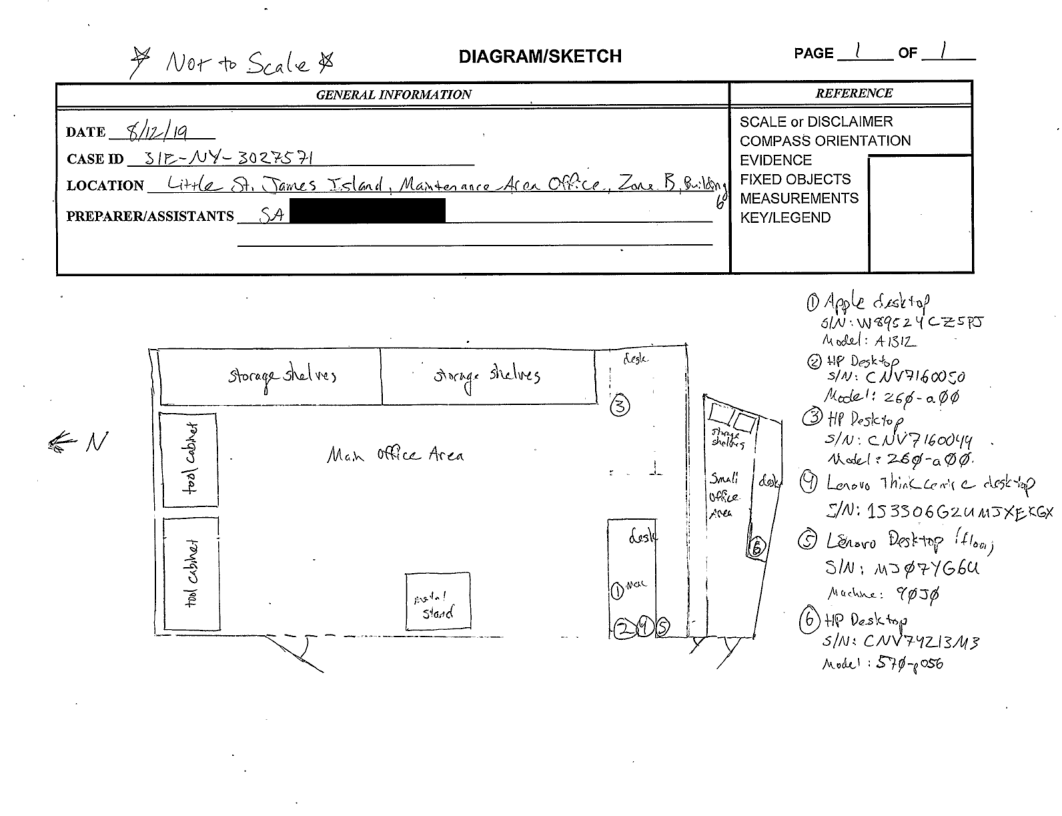 ☆ Not to Scale ☆
DIAGRAM/SKETCH
PAGE 1 OF 1
GENERAL INFORMATION
REFERENCE
DATE 8/12/19
CASE ID 31E-NY-3027571
LOCATION Little St. James Island, Maintenance Area Office, Zone B, Building 6
PREPARER/ASSISTANTS SA
SCALE or DISCLAIMER
COMPASS ORIENTATION
EVIDENCE
FIXED OBJECTS
MEASUREMENTS
KEY/LEGEND
① Apple desktop
S/N: W89524CZ5PJ
Model: A1312
② HP Desktop
S/N: CNV7160050
Model: 260-a00
③ HP Desktop
S/N: CNV7160049
Model: 260-a00
④ Lenovo ThinkCentre desktop
S/N: 1S3306G2UMJXEKGX
⑤ Lenovo Desktop (floor)
S/N: MJ07YG6U
Machine: 90J0
⑥ HP Desktop
S/N: CNV74213M3
Model: 570-p056
N
storage shelves
storage shelves
desk
③
tool cabinet
Main Office Area
storage shelves
Small Office Area
desk
⑥
tool cabinet
metal stand
desk
① mac
② ④ ⑤